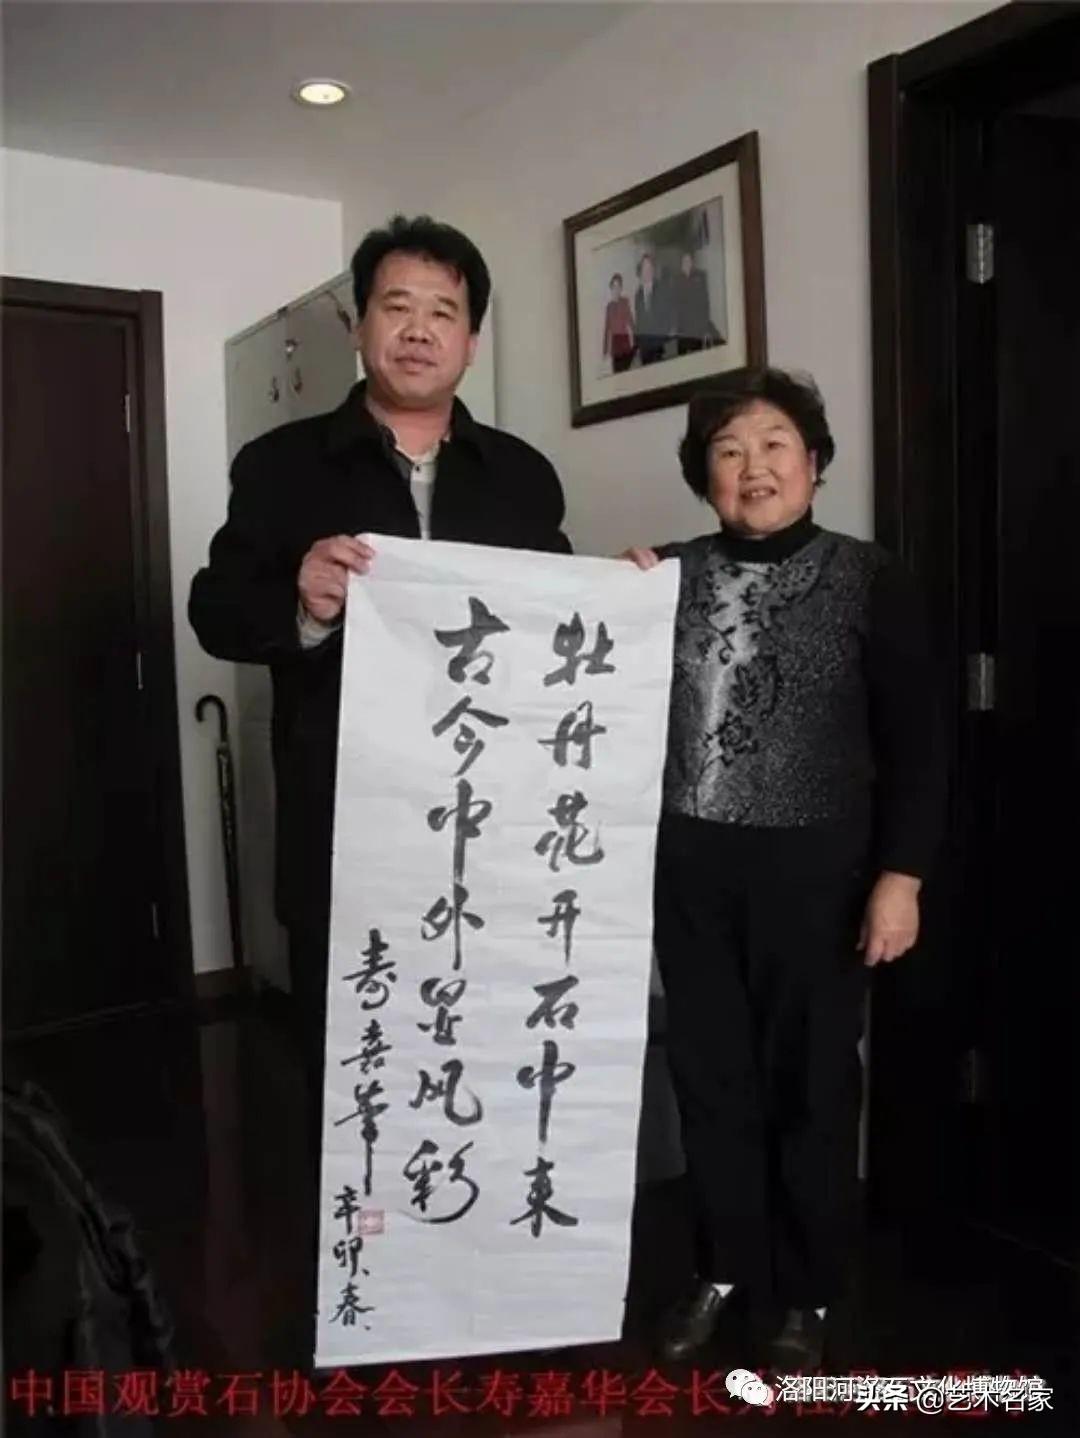 牡丹花开石中来
古今中外显风彩
寿嘉华
辛卯春
中国观赏石协会会长寿嘉华会长为牡丹石题字
洛阳河洛石文化博物馆
头条@艺术名家